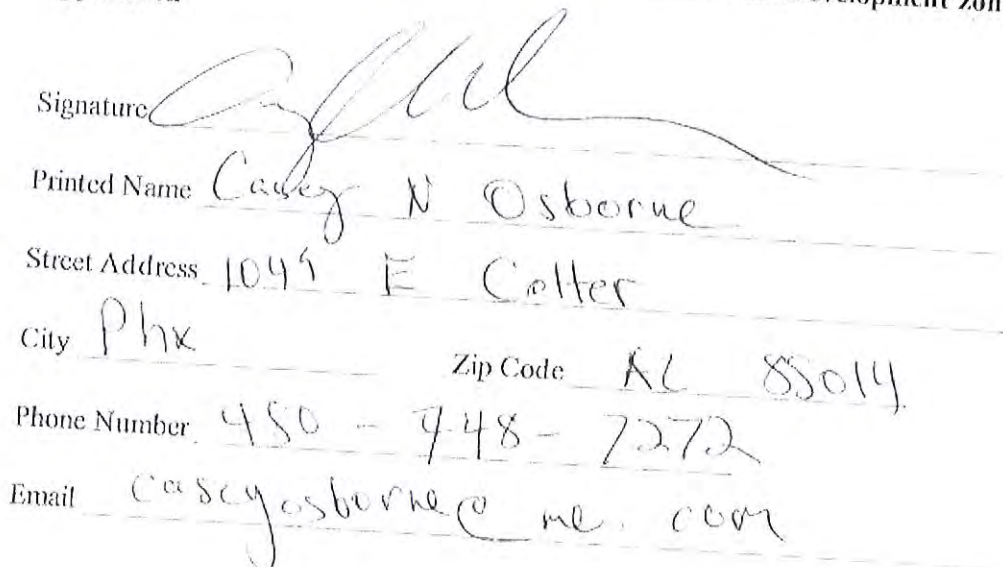 Signature
Printed Name Casey N Osborne
Street Address 1045 E Colter
City Phx Zip Code AZ 85014
Phone Number 480 - 948 - 7272
Email caseyosborne@me.com